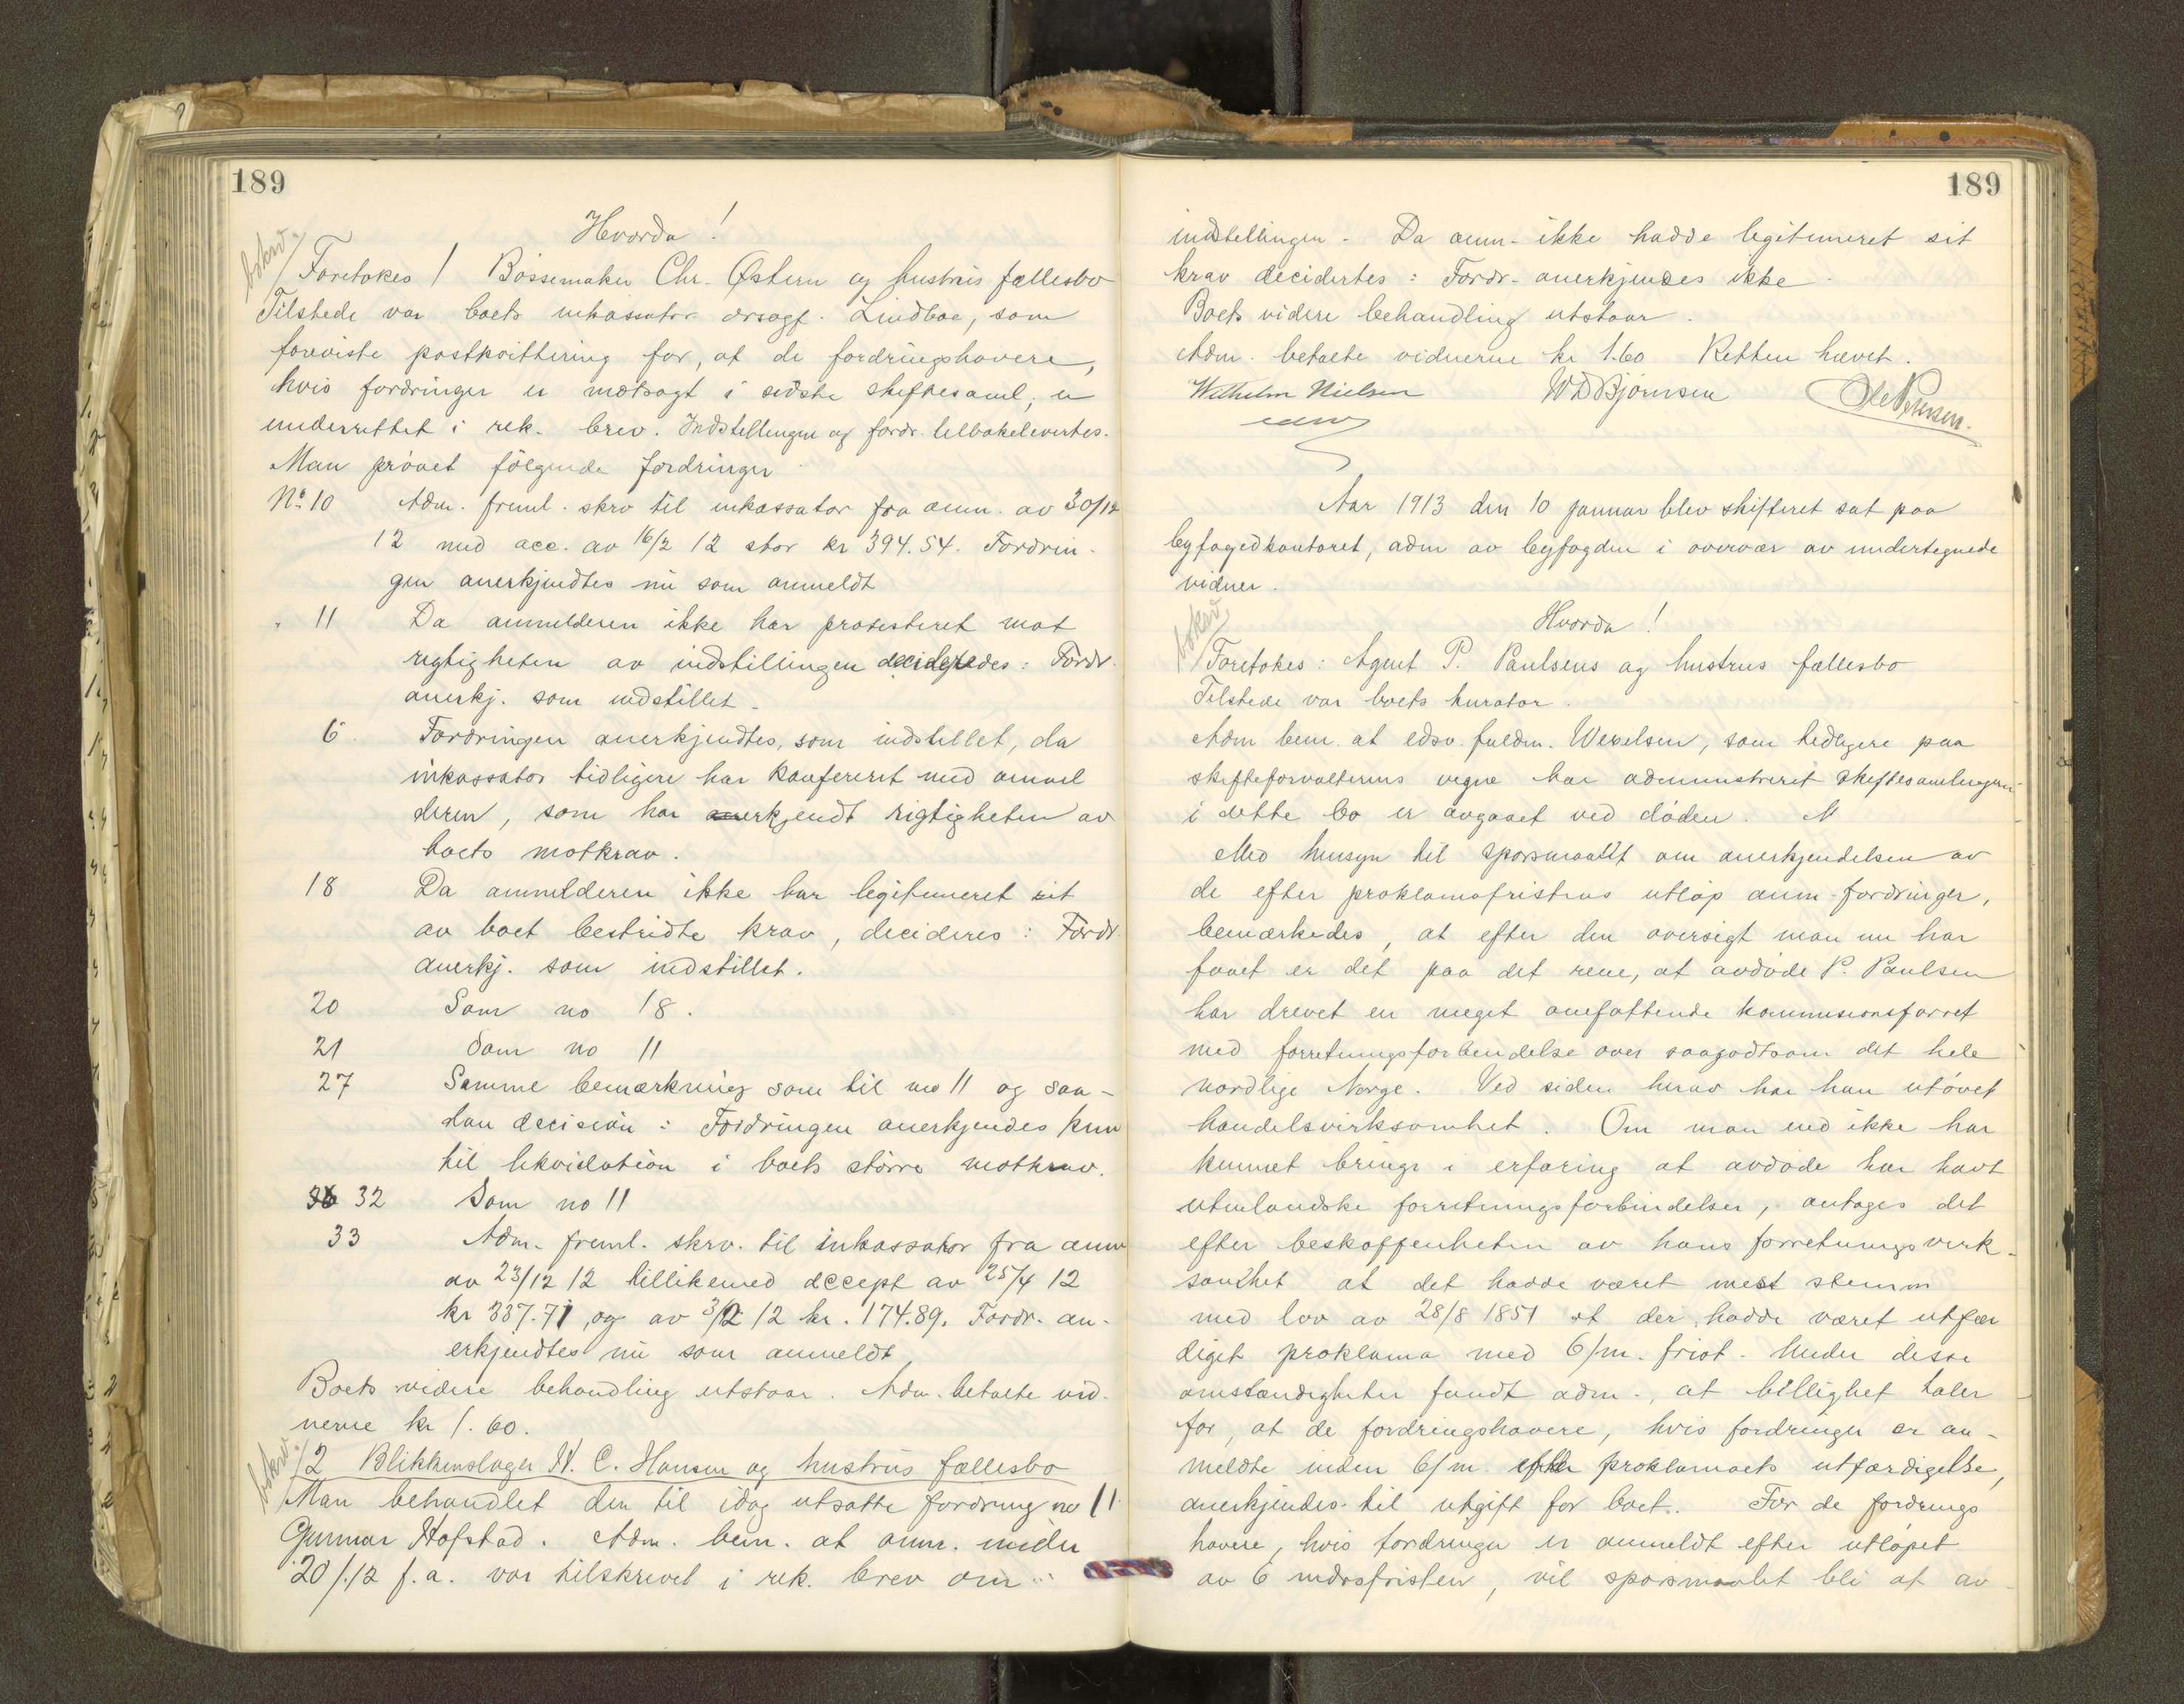 189
Hvorda!
bokv.
Foretokes 1 Bössemaker Chr. Östern og hustrus fællesbo
Tilstede var boets inkassator orsagf. Lindboe, som
foreviste postkvittering for, at de fordringshavere,
hvis fordringer er motsagt i sidste skiftesaml, er
underrettet i rek. brev. Indstillingen og fordr. tilbakelevertes.
Man prövet fölgende fordringer
No. 10 Adm. freml. skrv til inkassator fra anm. av 30/12
12 med acc. av 16/2 12 stor kr 394.54. Fordrin-
gen anerkjendtes nu som anmeldt
" 11 Da anmelderen ikke har protesteret mot
rigtigheten av indstillingen decidertes: Fordr.
anerkj. som indstillet.
6. Fordringen anerkjendtes, som indstillet, da
inkassator tidligere har konfereret med anmel
deren, som har erkjendt rigtigheten av
boets motkrav.
18 Da anmelderen ikke har legitimeret sit
av boet bestridte krav, decideres: Fordr.
anerkj. som indstillet.
20 Som no 18.
21 Som no 11
27 Samme bemærkning som til no 11 og saa-
dan decision: Fordringen anerkjendes kun
til likvidation i boets större motkrav.
32 Som no 11
33 Adm. freml. skrv. til inkassator fra anm
av 23/12 12 tillikemed accept av 25/4 12
kr 337.71, og av 3/2 12 kr. 174.89. Fordr. an-
erkjendtes nu som anmeldt
Boets videre behandling utstaar. Adm. betalte vid-
nerne kr 1.60.
bokv.
2 Blikkenslager H. C. Hansen og hustrus fællesbo
Man behandlet den til idag utsatte fordring no 11
Gunnar Hofstad. Adm. bem. at anm. under
20/12 f.a. var tilskrevet i rek. brev om
189
indstellingen. Da anm. ikke hadde legitimeret sit
krav decidertes: Fordr. anerkjendes ikke.
Boets videre behandling utstaar.
Adm. betalte vidnerne kr 1.60 Retten hævet.
Wilhelm Nielsen W D Bjørnsen
Aar 1913 den 10 januar blev skifteret sat paa
byfogedkontoret, adm av byfogden i overvær av undertegnede
vidner.
Hvorda!
bokv
Foretokes: Agent P. Paulsens og hustrus fællesbo
Tilstede var boets kurator.
Adm bem. at edsv. fuldm. Wexelsen, som tidligere paa
skifteforvalterens vegne har administreret skiftesamlingen
i dette bo er avgaaet ved döden. M
Med hensyn til spørsmaalet om anerkjendelsen av
de efter proklamafristens utlöp anm. fordringer,
bemærkedes, at efter den oversigt man nu har
faaet er det paa det rene, at avdöde P. Paulsen
har drevet en meget omfattende kommisionsforret
med forretningsforbindelse over saagodtsom det hele
nordlige Norge. Ved siden herav har han utövet
handelsvirksomhet. Om man end ikke har
kunnet bringe i erfaring at avdöde har havt
utenlandske forretningsforbindelser, antages det
efter beskaffenheten av hans forretningsvirk-
somhet at det hadde været mest stemm
med lov av 28/8 1851 at der hadde været utfær
diget proklama med 6/m. frist. Under disse
omstændigheter fandt adm., at billighet taler
for, at de fordringshavere, hvis fordringer er an-
meldte inden 6/m. efter proklamaets utfærdigelse,
anerkjendes til utgift for boet. For de fordrings
havere, hvis fordringer er anmeldt efter utløpet
av 6 mdrsfristen, vil spørsmaalet bli at av